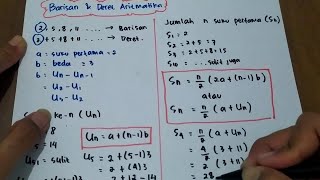 Barisan & Deret Aritmatika
② 2, 5, 8, 11 ..... → Barisan
② 2 + 5 + 8 + 11 ..... → Deret.
a : suku pertama = 2
b : beda = 3
b : Un - Un-1
: U2 - U1
: U3 - U2
ke-n (Un)
8
= 14
U5 = sulit
Un = a + (n-1) b
U5 = 2 + (5-1) 3
= 2 + (4) 3
= 2 + 12 = 14
Jumlah n suku pertama (Sn)
S1 = 2
S2 = 2 + 5 = 7
S3 = 2 + 5 + 8 = 15
S10 = ... sulit juga
Sn = n/2 (2a + (n-1) b)
atau
Sn = n/2 (a + Un)
S4 = n/2 (a + Un)
= 4/2 (3 + 11)
= 2 (3 + 11)
= 28